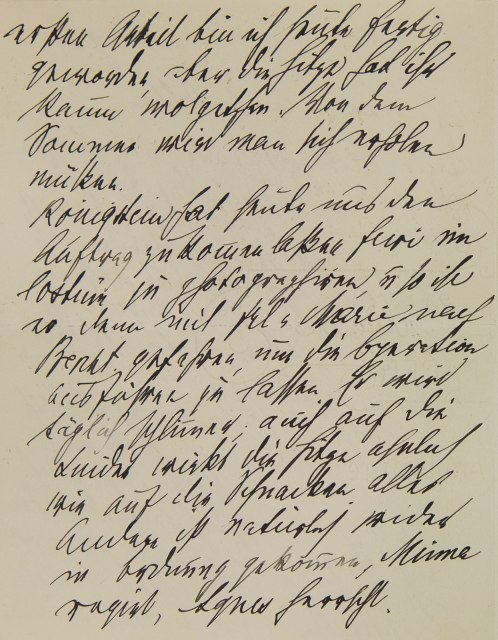 ersten Anteil bin ich heute fertig
geworden, aber die Hitze hat ihr
kaum wolgethan. Von dem
Sommer wird man sich erholen
müßen.
Königstein hat heute uns den
Auftrag zukommen laßen im
Costüm zu photographiren, u so ist
er denn mit Frl. Marie nach
gefahren, um die Operation
ausführen zu lassen. Er wird
täglich auch auf die
Kinder wirkt die Hitze ähnlich
wie auf die Schnacken, alles
Andere ist natürlich wider
in Ordnung gekommen, Minna
regirt, Agnes herrscht.